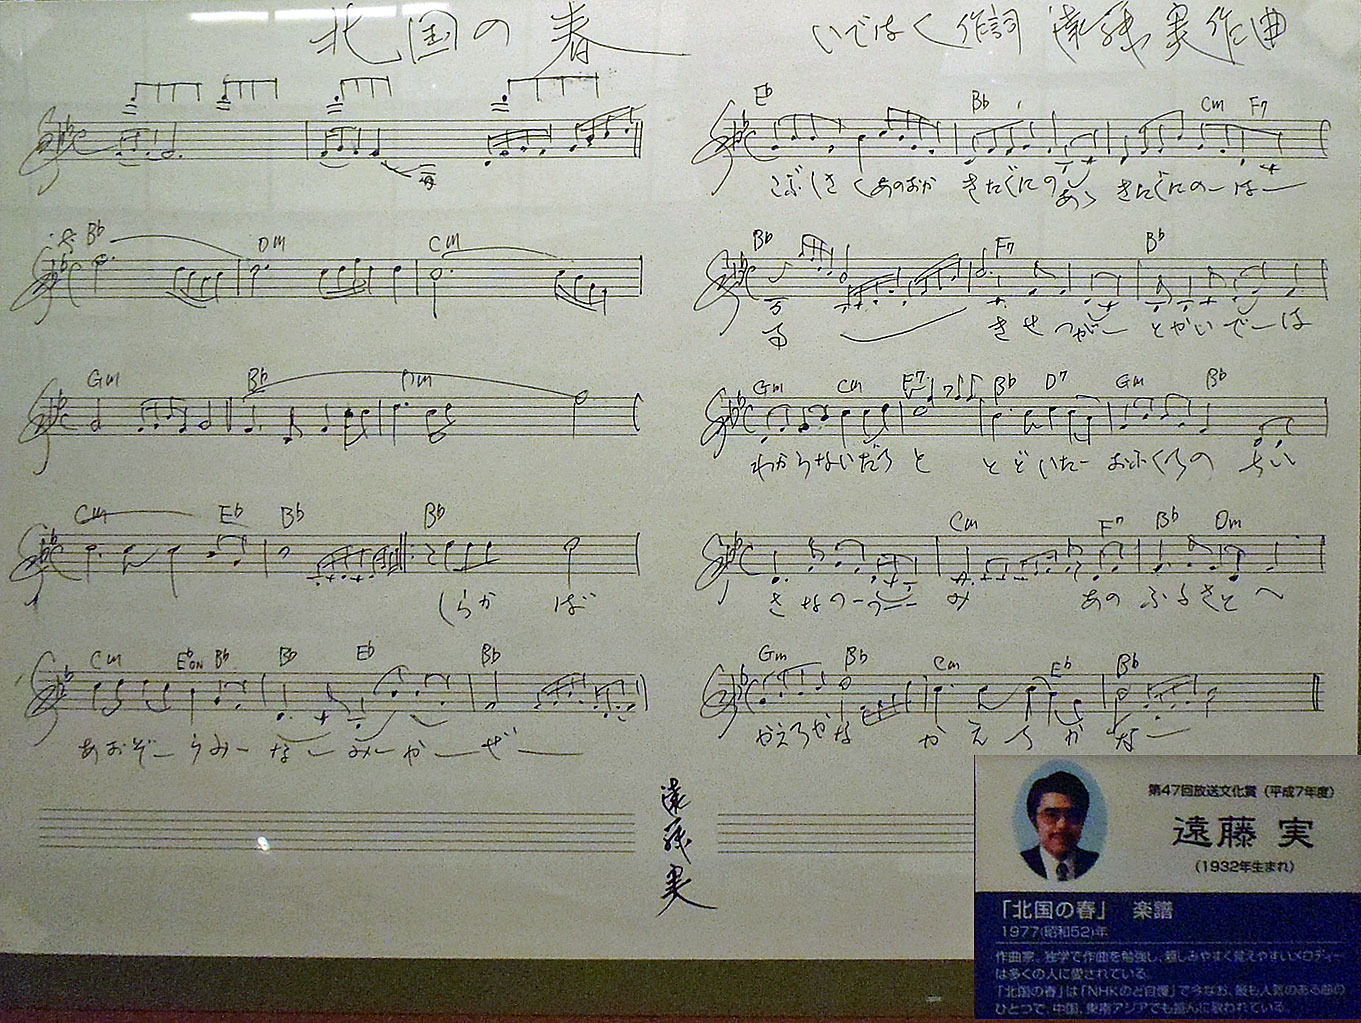 北国の春
いではく 作詞 遠藤実 作曲
Bb Dm Cm
Gm Bb Dm
Cm Eb Bb Bb
しらかば
Cm Eb ON Bb Bb Eb Bb
あおぞーらみーなーみーかーぜー
Eb Bb Cm F7
こぶしさくあのおか きたぐにのあゝ きたぐにのーはー
Bb F7 Bb
る きせつがー とかいでーは
Gm Cm F7 Bb D7 Gm Bb
わからないだろと とどいたー おふくろの ちい
Cm F7 Bb Dm
さなつーつーーみ あのふるさとへ
Gm Bb Cm Eb Bb
かえろかな かえろかなー
遠藤実
第47回放送文化賞(平成7年度)
遠藤 実
(1932年生まれ)
「北国の春」 楽譜
1977(昭和52)年
作曲家。独学で作曲を勉強し、親しみやすく覚えやすいメロディー
は多くの人に愛されている。
「北国の春」は「NHKのど自慢」で今なお、最も人気のある曲の
ひとつで、中国、東南アジアでも盛んに歌われている。